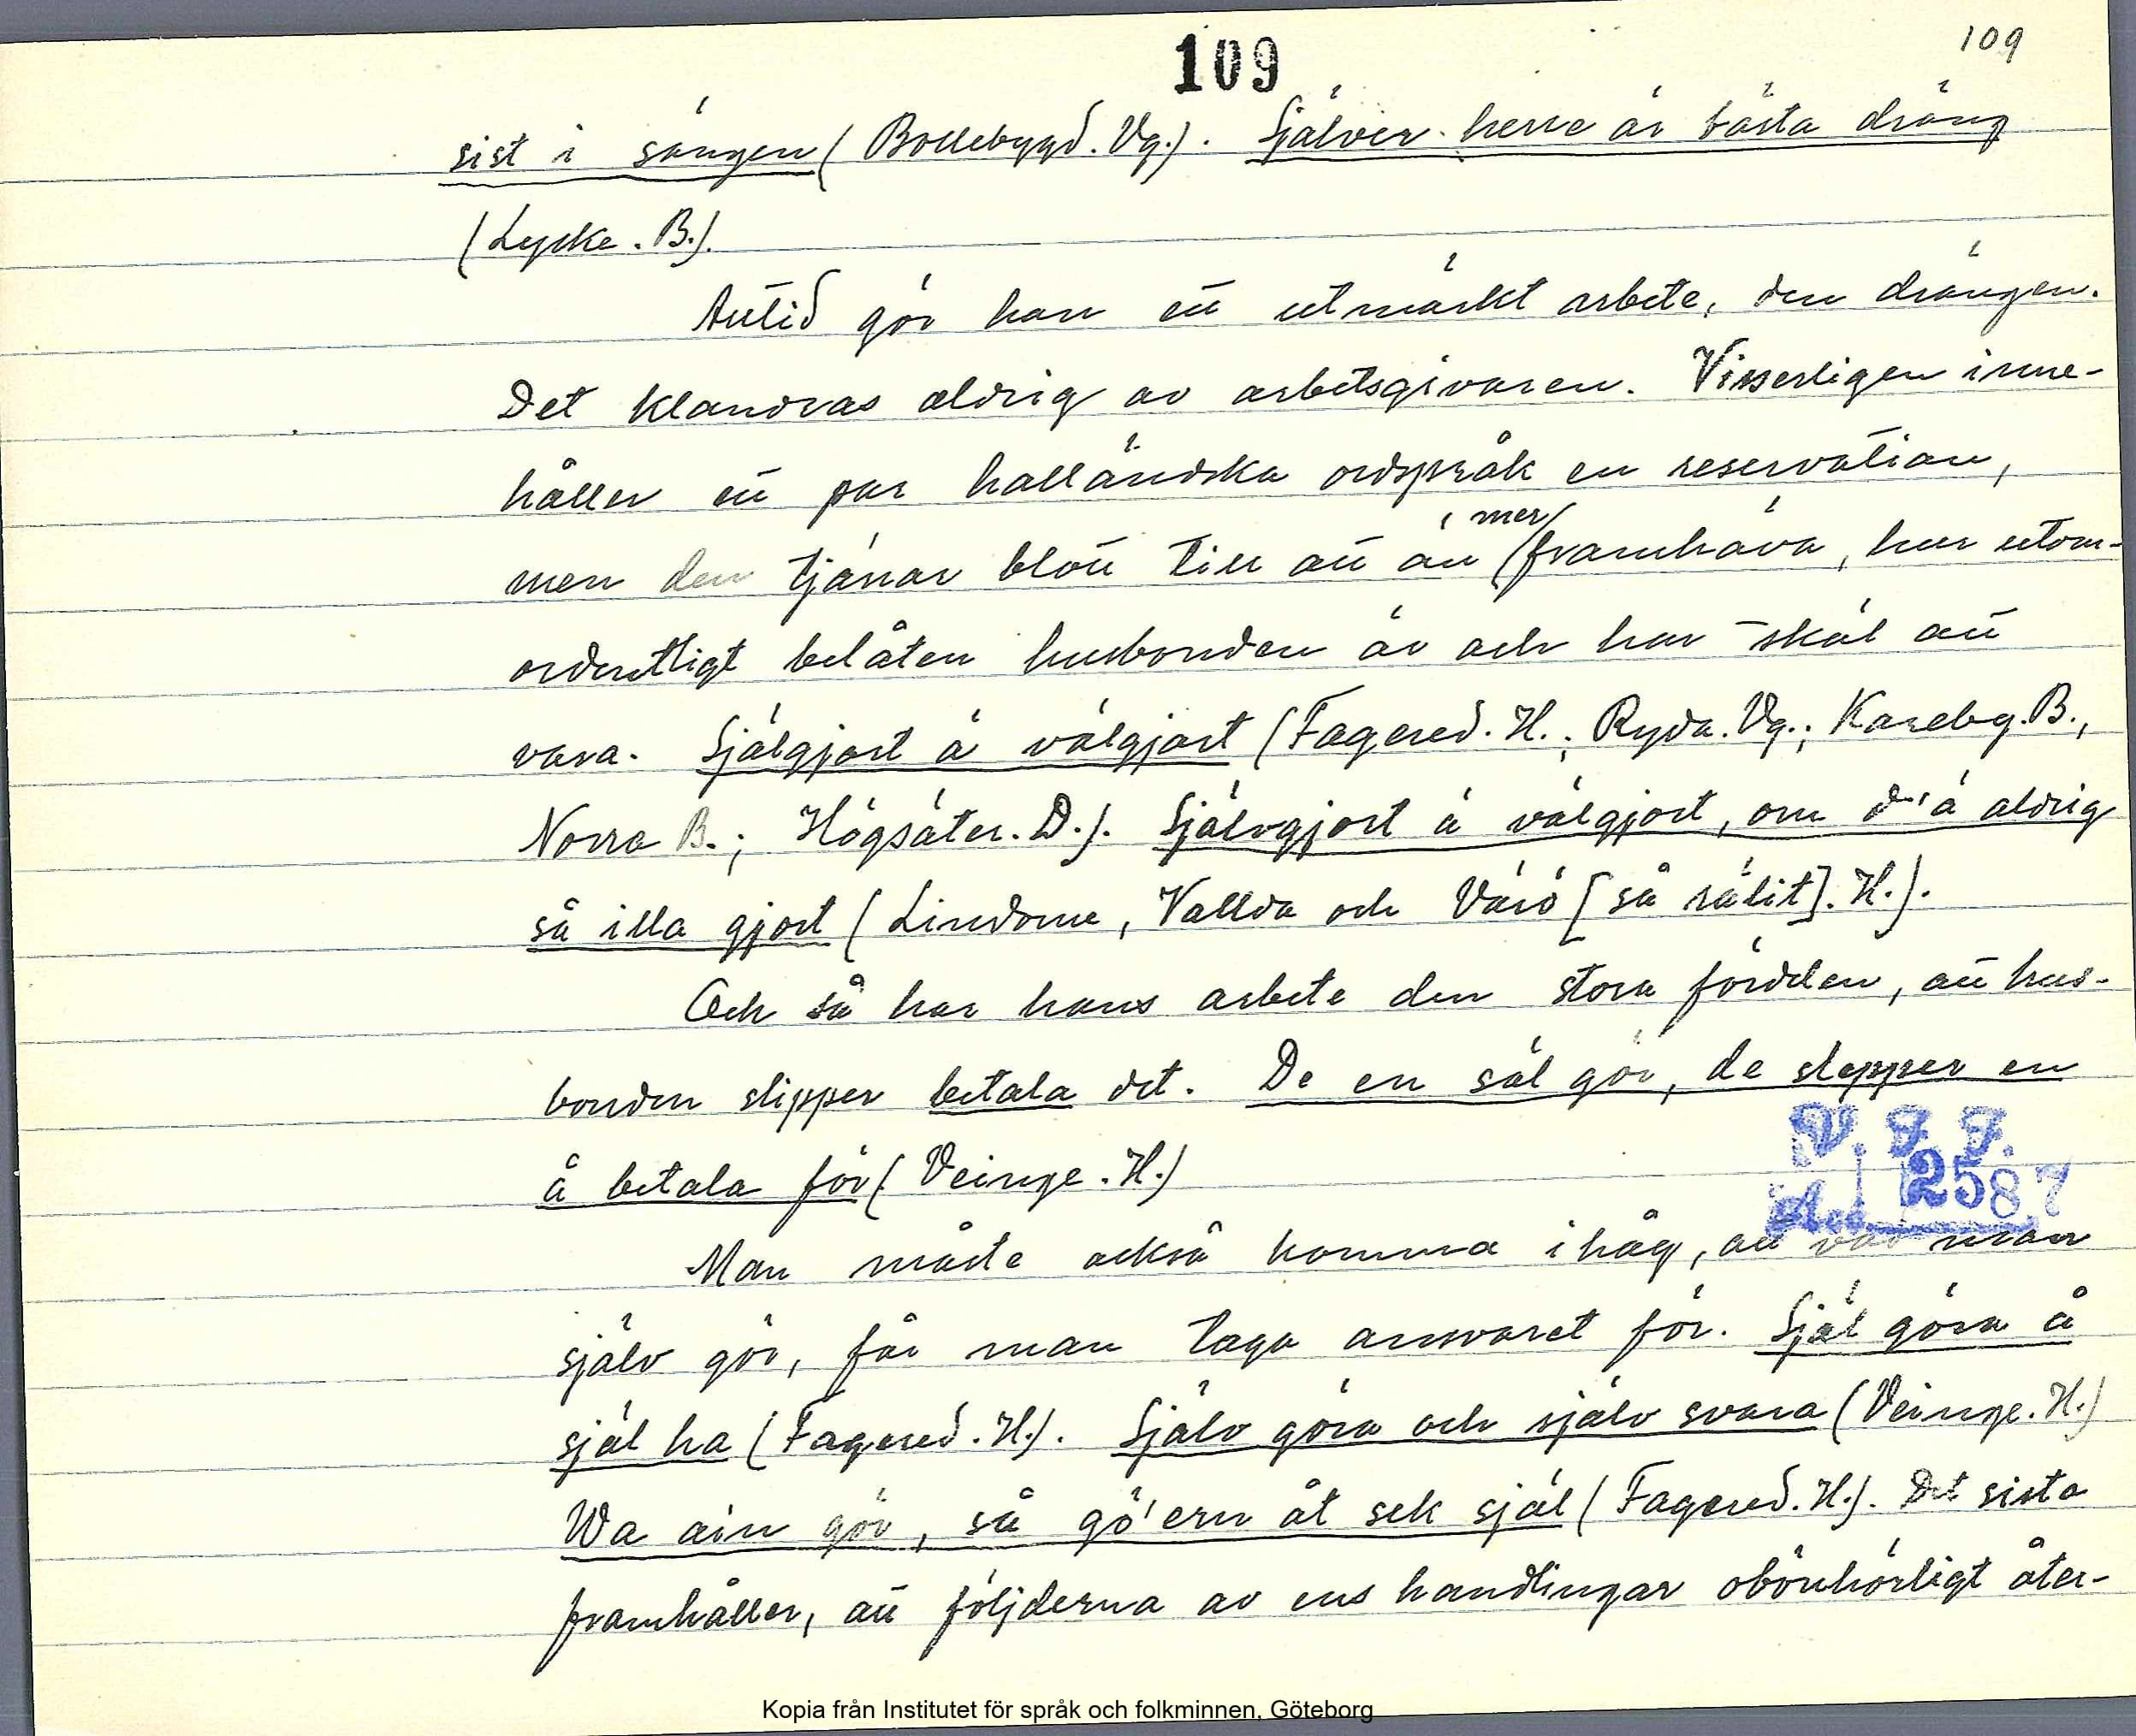 109
109
sist i sängen (Bollebygd. Vg.). Själver herre är bästa dräng
(Lycke. B.).
Alltid gör han ett utmärkt arbete, den drängen.
Det klandras aldrig av arbetsgivaren. Visserligen inne-
håller ett par halländska ordspråk en reservation,
men den tjänar blott till att än mer framhäva, hur utom-
ordentligt belåten husbonden är och har skäl att
vara. Själgjort ä välgjort (Fagered. H.; Ryda. Vg.; Kareby. B.,
Norra B.; Högsäter. D.). Självgjort ä välgjort, om d'ä aldrig
så illa gjort (Lindome, Vallda och Värö [så rälit]. H.).
Och så har hans arbete den stora fördelen, att hus-
bonden slipper betala det. De en säl gör, de slepper en
å betala för (Veinge. H.)
V. F. F.
Acc. 2587
Man måste också komma ihåg, att vad man
själv gör, får man taga ansvaret för. Själ göra å
själ ha (Fagered. H.). Själv göra och själv svara (Veinge. H.)
Wa ain gör, så gö'ern åt sek själ (Fagered. H.). Det sista
framhåller, att följderna av ens handlingar obönhörligt åter-
Kopia från Institutet för språk och folkminnen, Göteborg